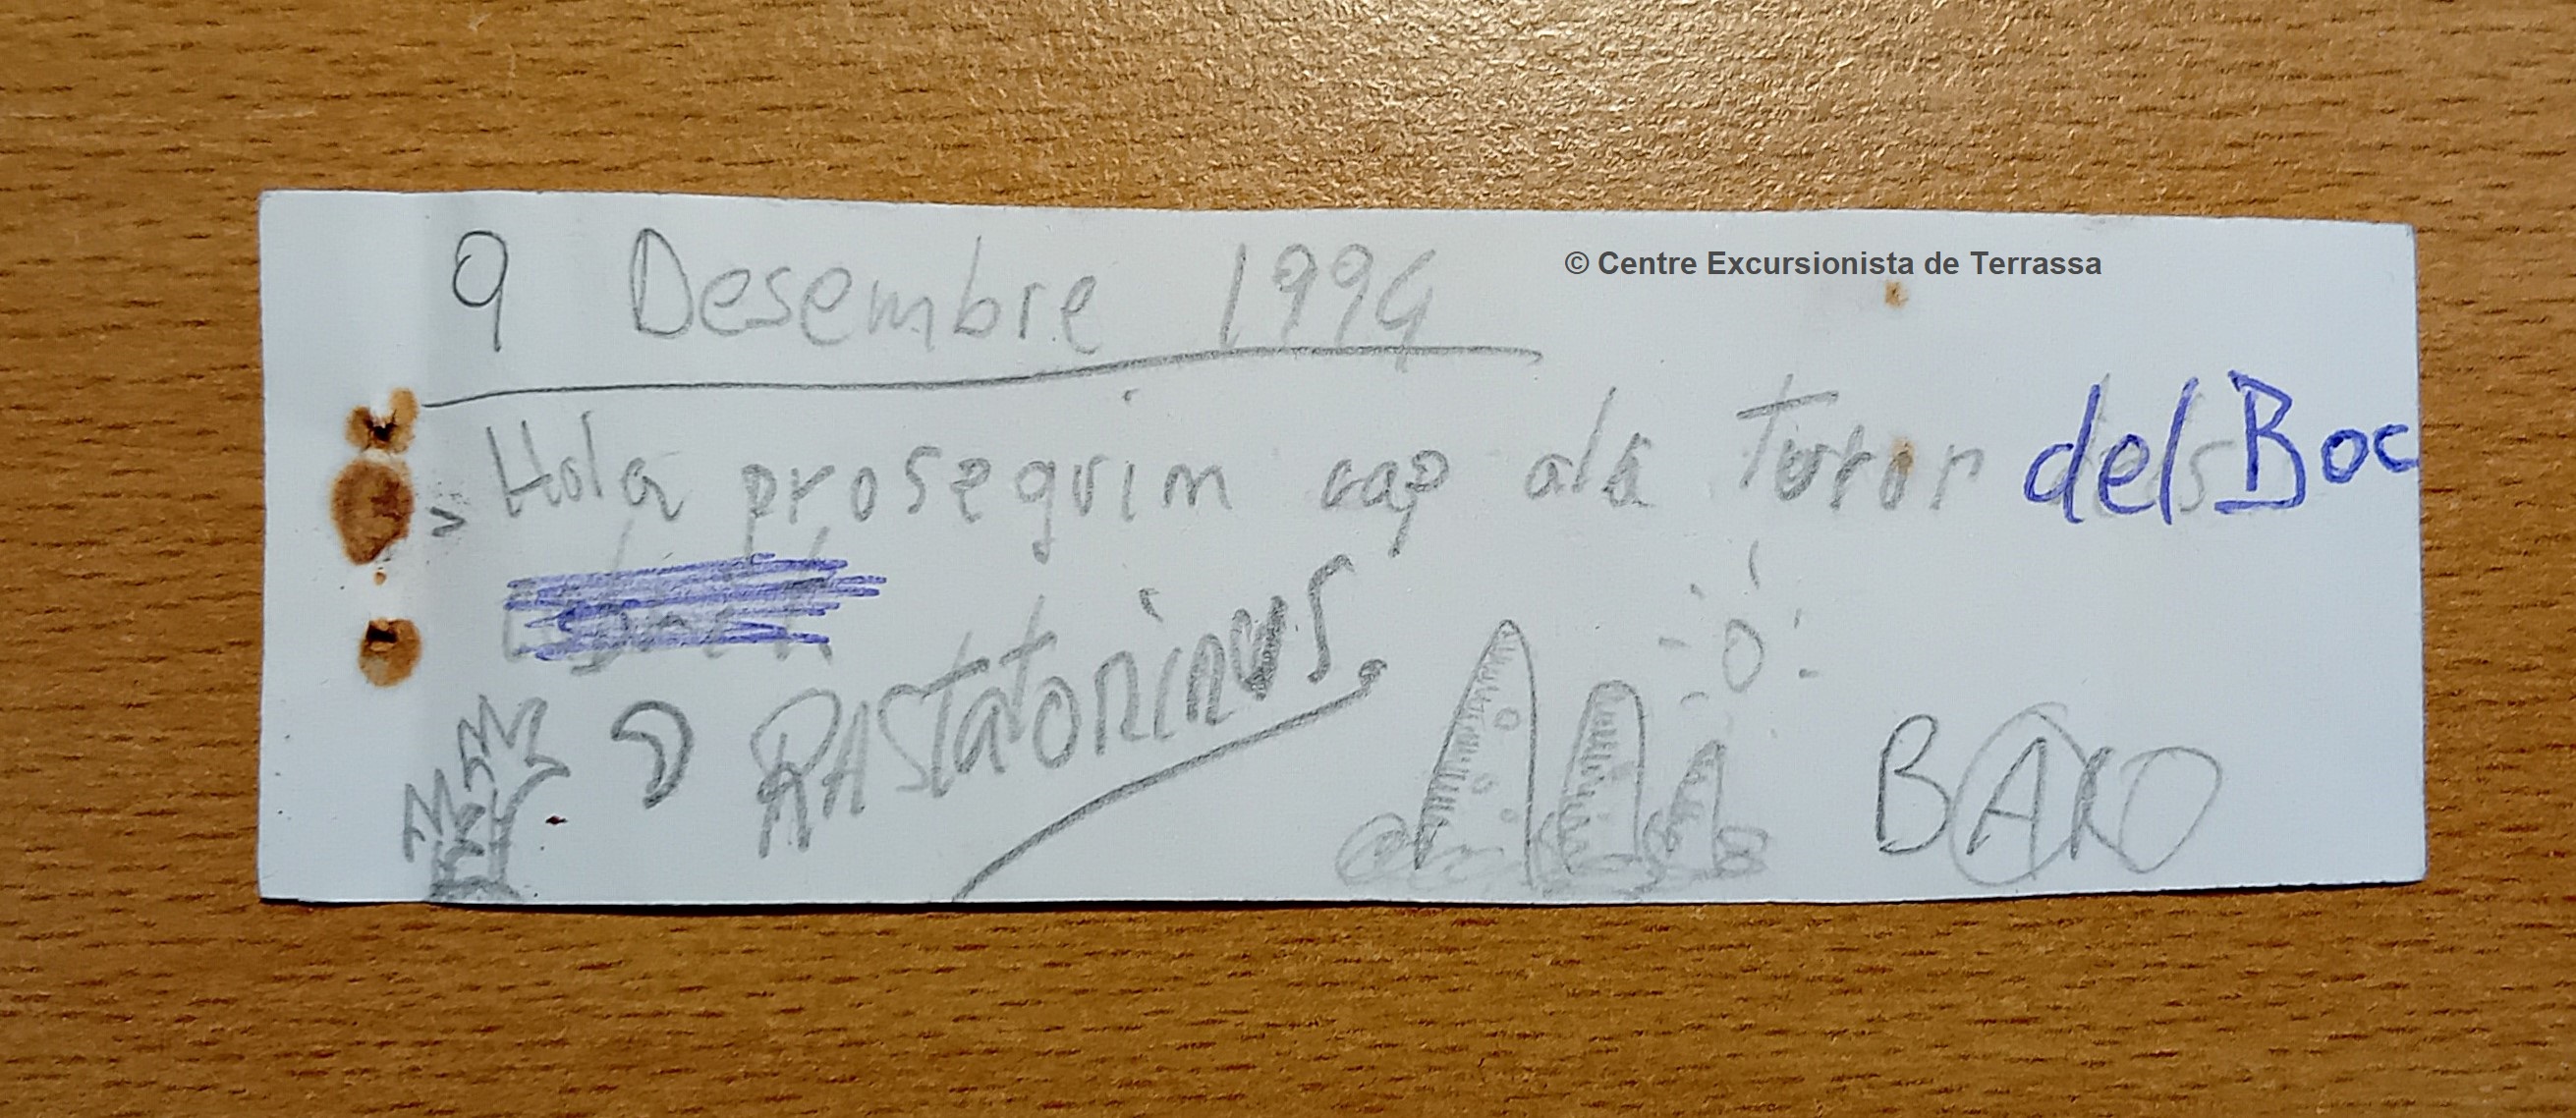 9 Desembre 1994
© Centre Excursionista de Terrassa
Hola proseguim cap ala Turor del Boc
RAStatoninus
BAKO